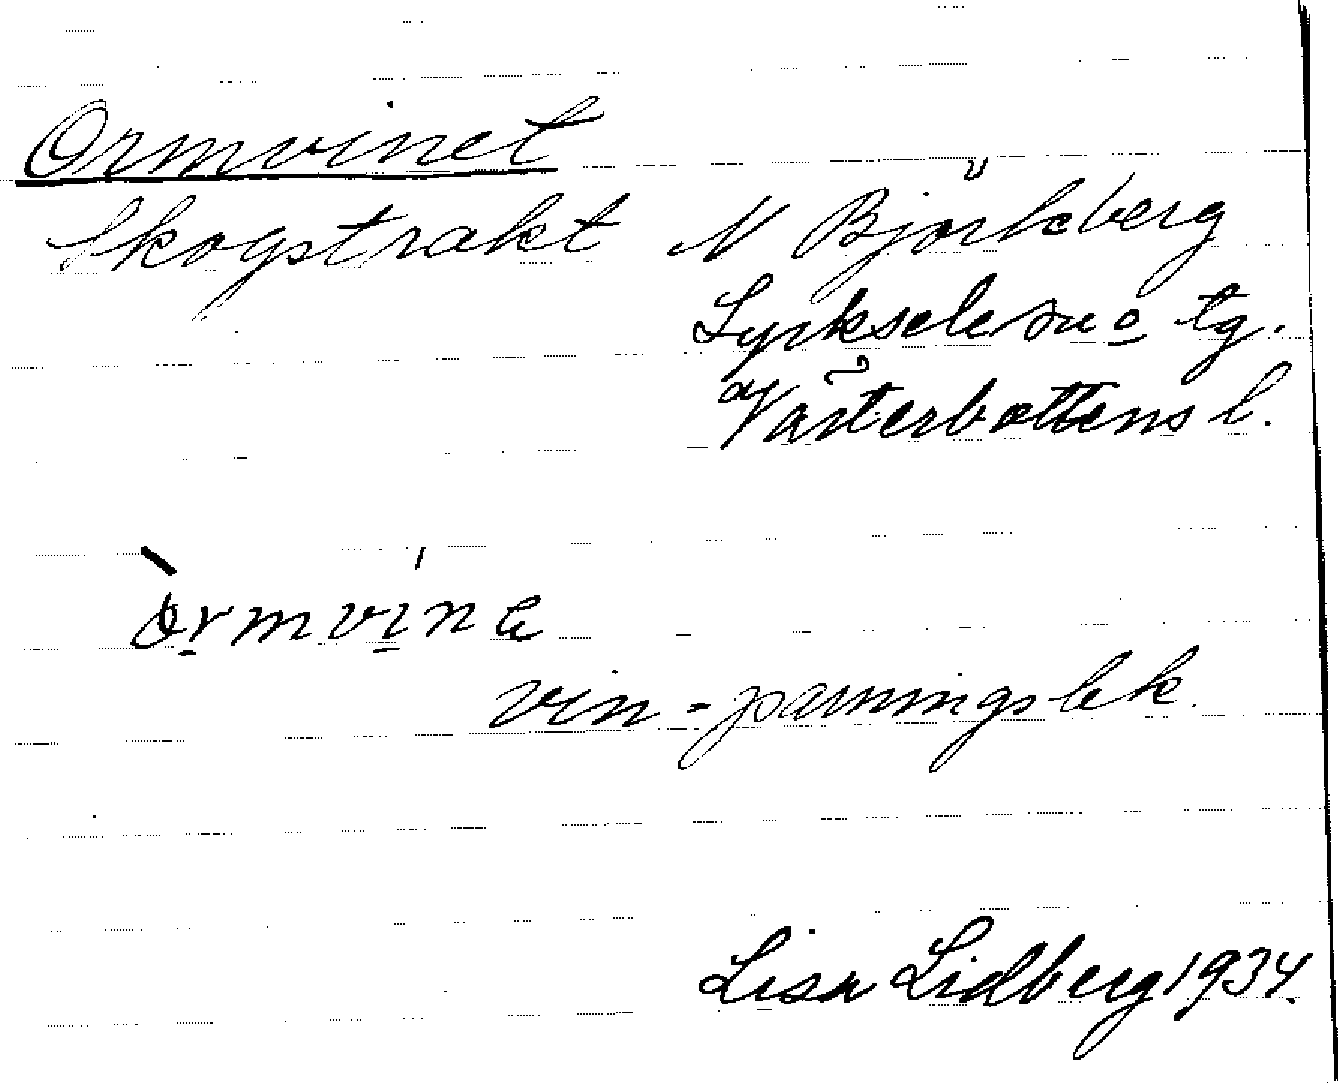 Ormvinet
Skogstrakt N Björkberg
Lycksele tg.
Västerbottens l.
ormvine
vin - parningslek.
Lisa Lidberg 1934.